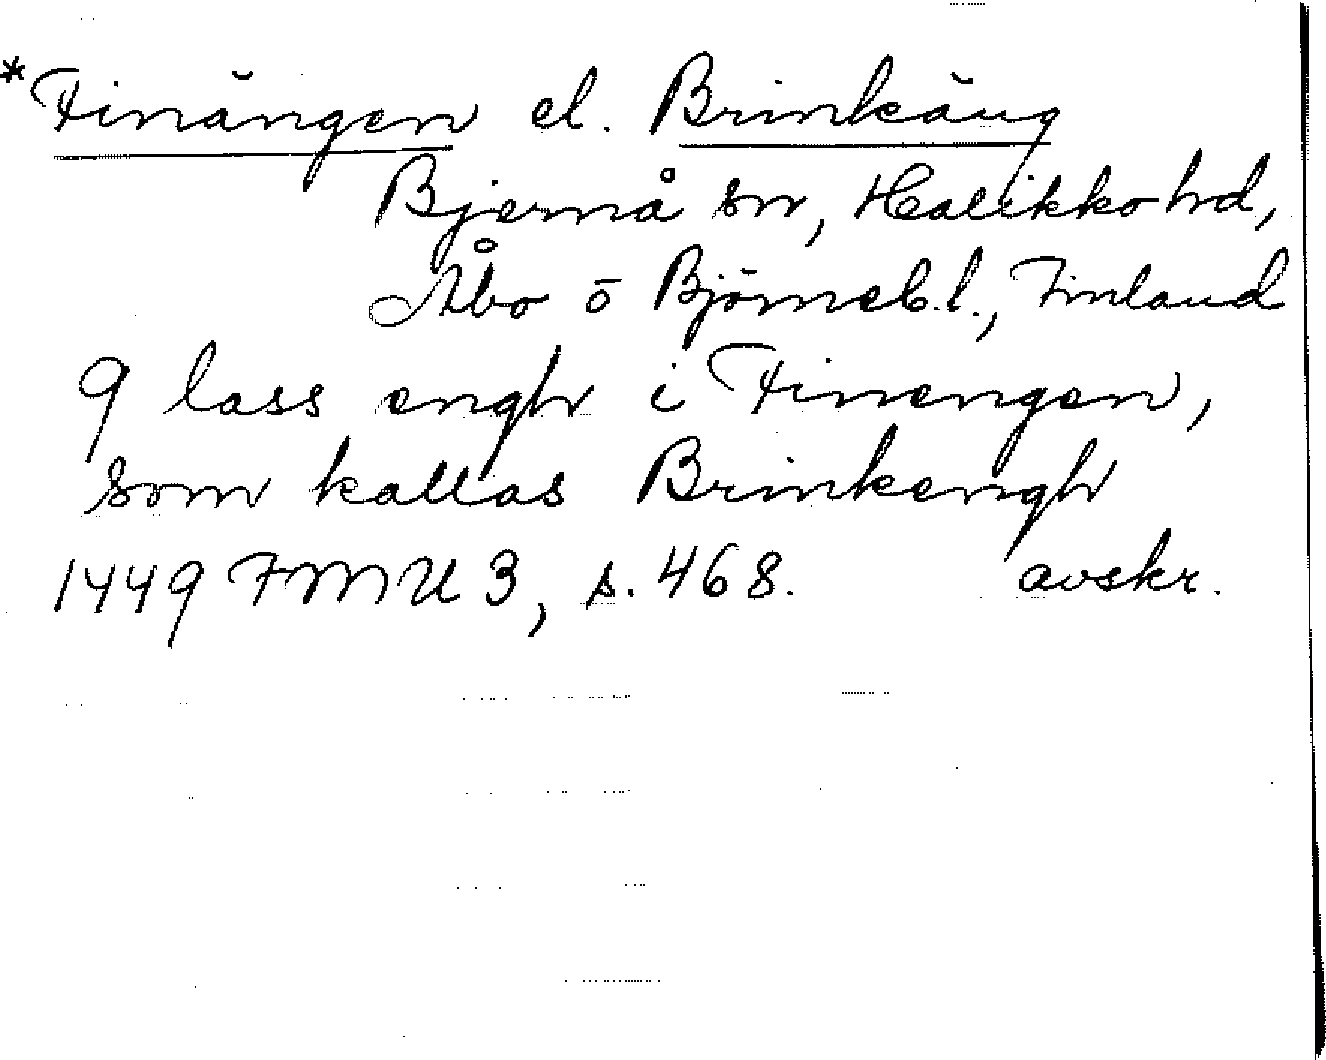 *Finängen el. Brinkäng
Bjernå sn, Halikko hd,
Åbo o Björneb.l., Finland
9 lass engh i Finengen,
som kallas Brinkengh
1449 FMU 3, s. 468. avskr.